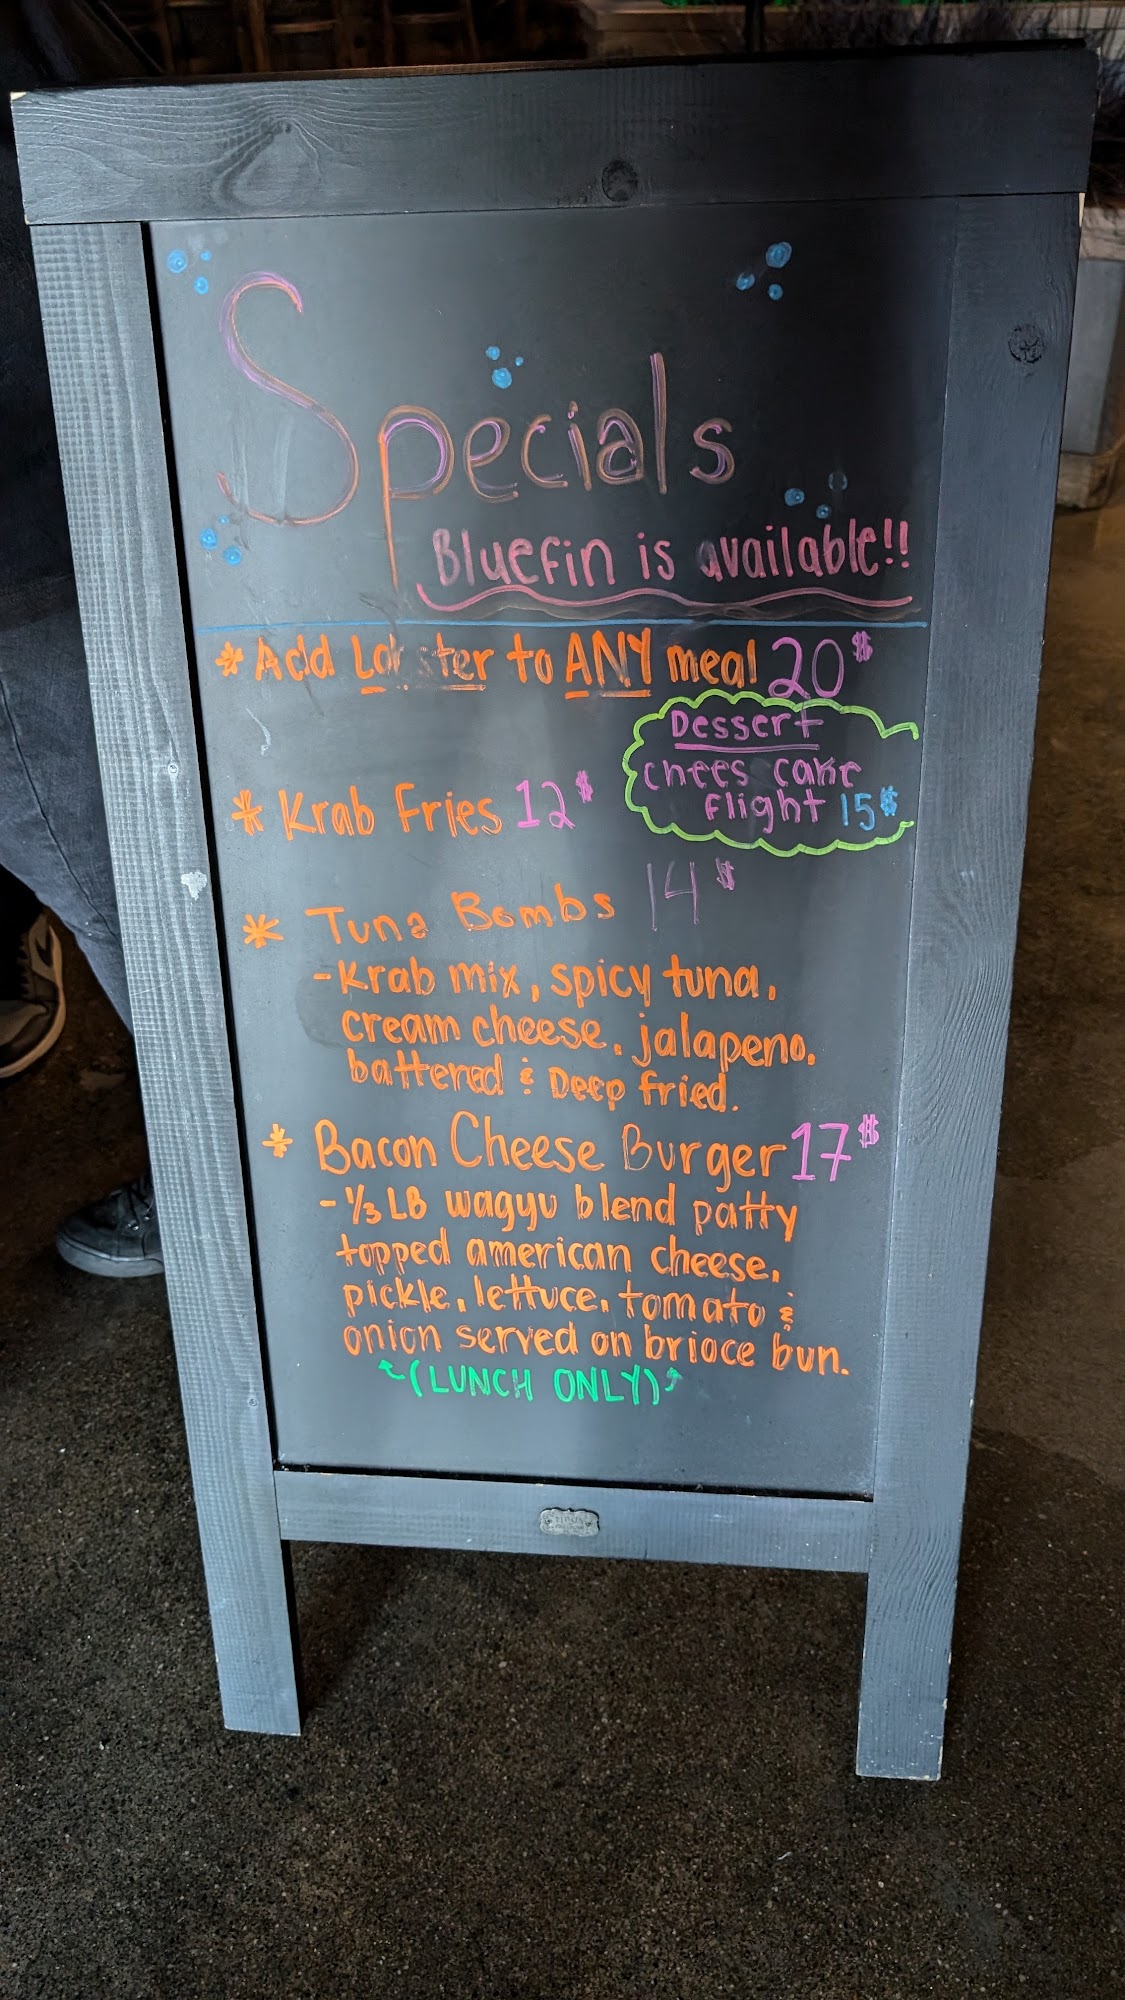 Specials
Bluefin is available!!
* Add Lobster to ANY meal 20$
Dessert
chees cake
flight 15$
* Krab Fries 12$
* Tuna Bombs 14$
- Krab mix, spicy tuna,
cream cheese, jalapeno,
battered & Deep fried.
* Bacon Cheese Burger 17$
- 1/3 LB wagyu blend patty
topped american cheese,
pickle, lettuce, tomato &
onion served on brioce bun.
(LUNCH ONLY)